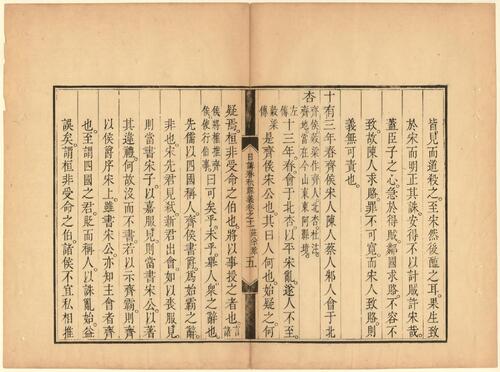 皆見而道殺之至宋然後醢之耳果生致
於宋而明正其誅安得不以計賊許宋哉
蓋臣子之心急於得賊鄰國求賂不容不
致故陳人求賂罪不可寬而宋人致賂則
義無可責也
十有三年春齊侯宋人陳人蔡人邾人會于北
杏齊侯穀梁作齊人北杏杜注齊地當在今山東東阿縣境
左傳十三年春會于北杏以平宋亂遂人不至
穀梁傳是齊侯宋公也其曰人何也始疑之何
日講春秋解義卷之十一 五
疑焉桓非受命之伯也將以事授之者也言諸
侯將權推齊侯使行伯事曰可矣乎未乎舉人衆之辭也
先儒以四國稱人齊侯書爵爲始霸之辭
非也宋先君見弒新君出會如以喪服見
則當書宋子以嘉服見則當書宋公以著
其違禮何故沒而不書若以示齊霸則齊
侯以爵序宋上雖書宋公亦知主會者齊
也至謂四國之君貶而稱人以誅亂始益
誤矣謂桓非受命之伯諸侯不宜私相推